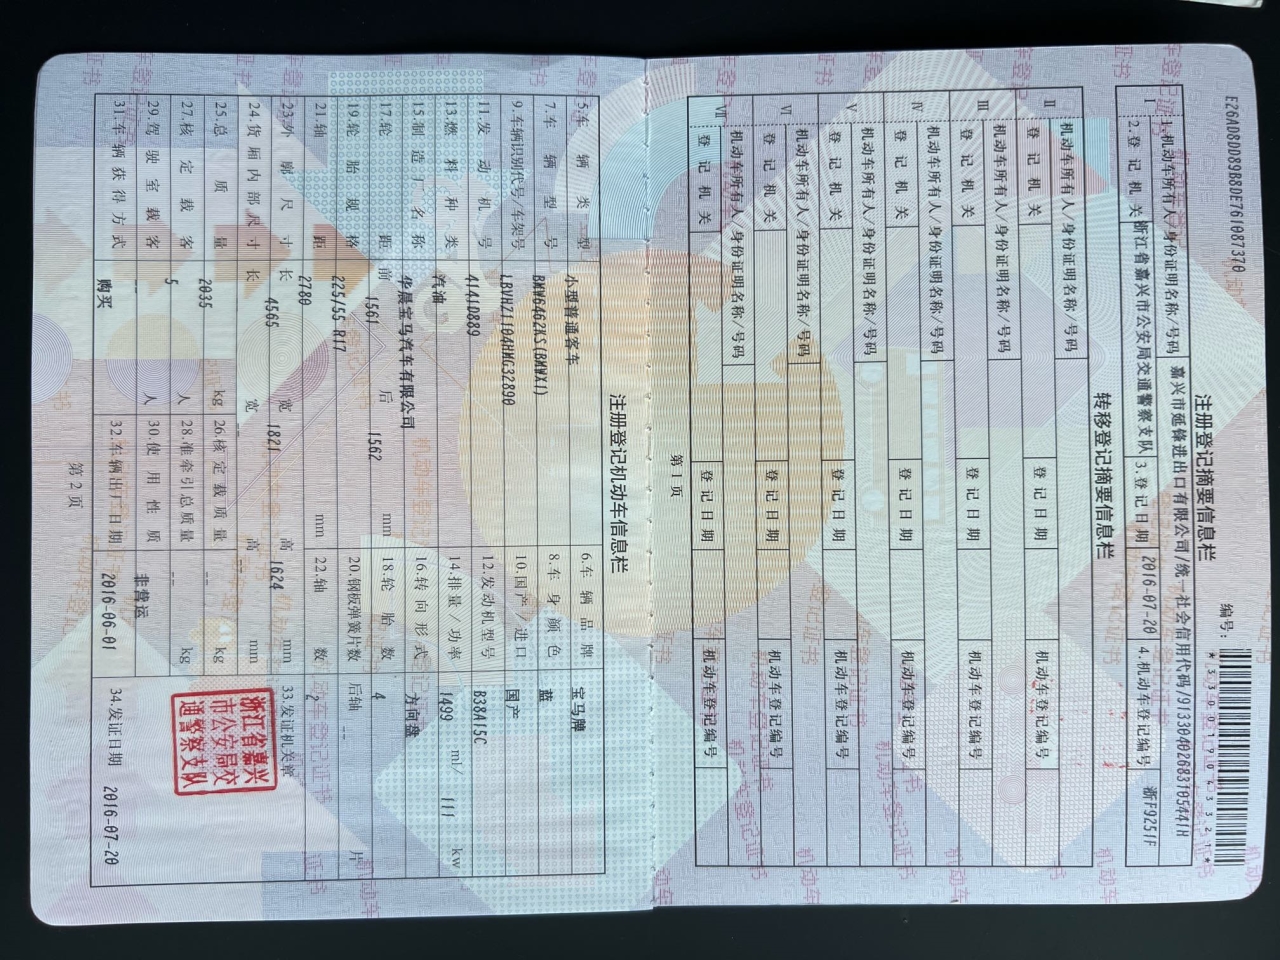 E26AD8DD89B8DE761087370
编号:
*330019043321*
注册登记摘要信息栏
I
1.机动车所有人/身份证明名称/号码 嘉兴市延锋进出口有限公司/统一社会信用代码/91330402683105441H
2.登记机关 浙江省嘉兴市公安局交通警察支队 3.登记日期 2016-07-20 4.机动车登记编号 浙F9251F
转移登记摘要信息栏
II
机动车所有人/身份证明名称/号码
登记机关 登记日期 机动车登记编号
III
机动车所有人/身份证明名称/号码
登记机关 登记日期 机动车登记编号
IV
机动车所有人/身份证明名称/号码
登记机关 登记日期 机动车登记编号
V
机动车所有人/身份证明名称/号码
登记机关 登记日期 机动车登记编号
VI
机动车所有人/身份证明名称/号码
登记机关 登记日期 机动车登记编号
VII
机动车所有人/身份证明名称/号码
登记机关 登记日期 机动车登记编号
第1页
注册登记机动车信息栏
5.车辆类型 小型普通客车 6.车辆品牌 宝马牌
7.车辆型号 BMW6462KS(BMWX1) 8.车身颜色 蓝
9.车辆识别代号/车架号 LBVHZ1104HMG32890 10.国产/进口 国产
11.发动机号 4141D889 12.发动机型号 B38A15C
13.燃料种类 汽油 14.排量/功率 1499 ml/ 111 kw
15.制造厂名称 华晨宝马汽车有限公司 16.转向形式 方向盘
17.轮距 前 1561 后 1562 mm 18.轮胎数 4
19.轮胎规格 225/55 R17 20.钢板弹簧片数 后轴 -- 片
21.轴距 2780 mm 22.轴数 2
23.外廓尺寸 长 4565 宽 1821 高 1624 mm
33.发证机关章
24.货厢内部尺寸 长 宽 高 mm
25.总质量 2035 kg 26.核定载质量 -- kg
27.核定载客 5 人 28.准牵引总质量 -- kg
29.驾驶室载客 -- 人 30.使用性质 非营运
31.车辆获得方式 购买 32.车辆出厂日期 2016-06-01 34.发证日期 2016-07-20
浙江省嘉兴
市公安局交
通警察支队
第2页